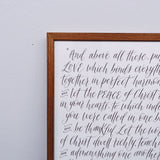 And above all these pu
LOVE which binds everyth
together in perfect harmon
& let the PEACE of Christ
in your hearts, to which ind
you were called in one
& be thankful Let the w
of Christ dwell richly, teach
& admonishing one anoth